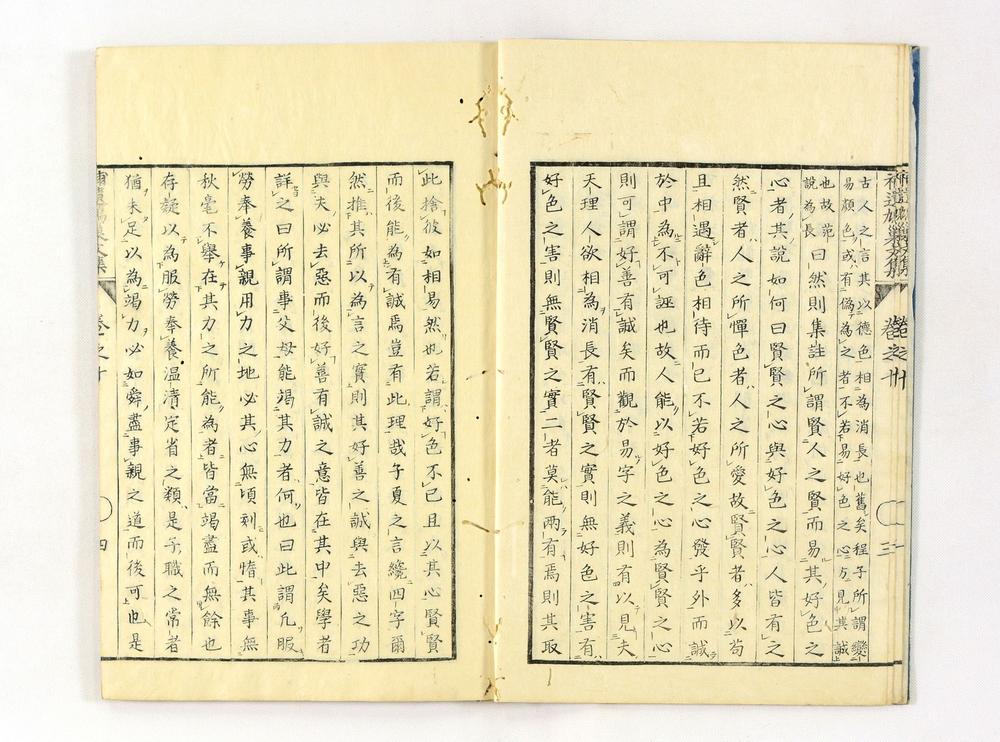 古人之言其以德色相為消長也舊矣程子所謂變
易顏色或有偽為之者不若易好色之心方見其誠
也故苑
說為長
曰然則集註所謂賢人之賢而易其好色之
心者其說如何曰賢賢之心與好色之心人皆有之
然賢者人之所憚色者人之所愛故賢賢者多以苟
且相遇辭色相待而已不若好色之心發乎外而誠
於中為不可誣也故人能以好色之心為賢賢之心
則可謂好善有誠矣而觀於易字之義則有以見夫
天理人欲相為消長有賢賢之實則無好色之害有
好色之害則無賢賢之實二者莫能兩有焉則其取
卷之
三
此捨彼如相易然也若謂好色不已且以其心賢賢
而後能為有誠焉豈有此理哉子夏之言纔四字爾
然推其所以為言之實則其好善之誠與去惡之功
與夫必去惡而後好善有誠之意皆在其中矣學者
詳之曰所謂事父母能竭其力者何也曰此謂凡服
勞奉養事親用力之地必其心無頃刻或惰其事無
秋毫不舉在其力之所能為者皆當竭盡而無餘也
存疑以為服勞奉養溫凊定省之類是子職之常者
猶未足以為竭力必如舜盡事親之道而後可也是
卷之
四